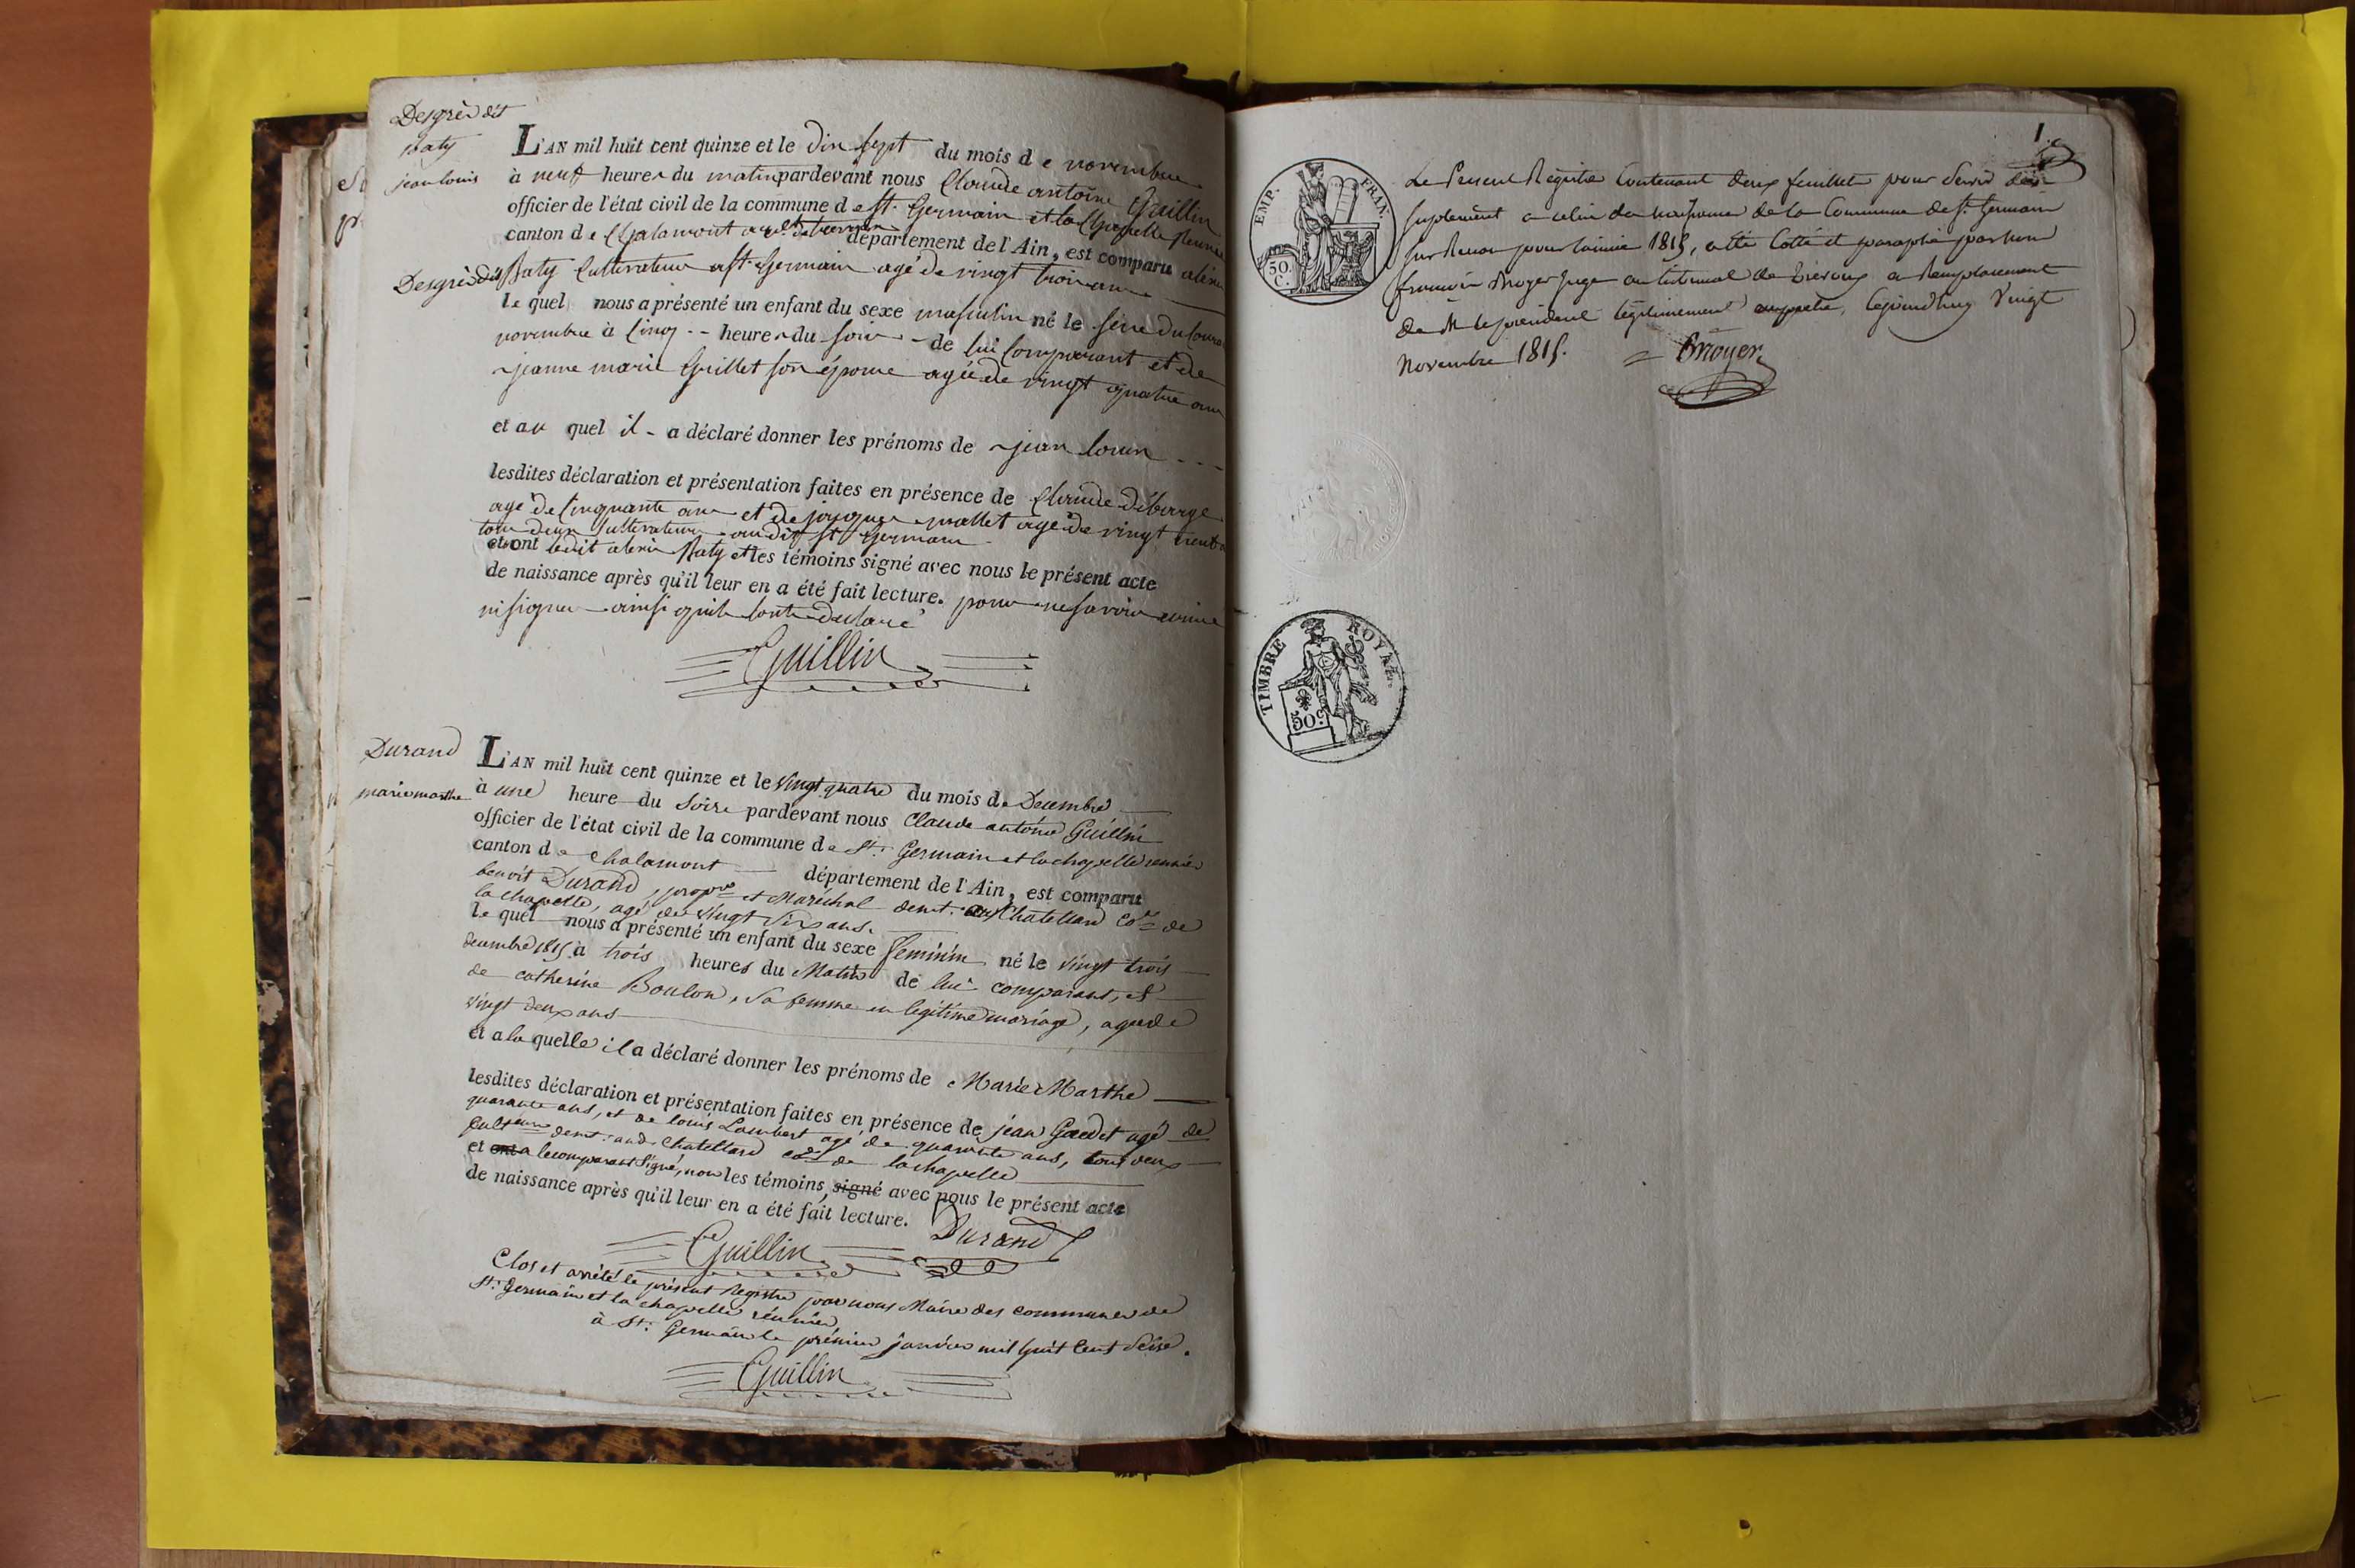 Desgrès dit
Baty
jean louis
L'AN mil huit cent quinze et le dix sept du mois de novembre
à neuf heures du matin pardevant nous Claude antoine Guillin
officier de l'état civil de la commune de St. Germain et la Chapelle Reunies
canton de Chalamont département de l'Ain, est comparu
Desgrès dit Baty Cultivateur a St. Germain agé de vingt trois ans
le quel nous a présenté un enfant du sexe masculin né le seize du
novembre à Cinq heures du soir de lui Comparant et de
jeanne marie Guillet son épouse agée de vingt quatre ans
et au quel il a déclaré donner les prénoms de jean louis
lesdites déclaration et présentation faites en présence de Claude Débarge
agé de Cinquante ans et de jacques mallet agé de vingt
tous deux Cultivateurs audit St Germain
et ont ledit Baty et les témoins signé avec nous le présent acte
de naissance après qu'il leur en a été fait lecture. pour ne savoir
ni signer ainsi qu'ils l'ont déclaré
Guillin
Durand
marie marthe
L'AN mil huit cent quinze et le vingt quatre du mois de Decembre
à une heure du soire pardevant nous Claude antoine Guillin
officier de l'état civil de la commune de St. Germain et la chapelle reunies
canton de Chalamont département de l'Ain, est comparu
benoit Durand, propre et Maréchal demt. au Chatellard Cone de
la chapelle, agé de vingt six ans.
le quel nous a présenté un enfant du sexe feminin né le vingt trois
decembre 1815 à trois heures du Matin de lui comparant, et
de catherine Boulon, sa femme en legitime mariage, agée de
vingt deux ans
et a la quelle il a déclaré donner les prénoms de Marie Marthe
lesdites déclaration et présentation faites en présence de jean Gaudet agé de
quarante ans, et de louis Lambert agé de quarante ans, tout deux
Culteurs demt. aud. Chatellard Cone de la chapelle
et ont a le comparant signé, non les témoins, signé avec nous le présent acte
de naissance après qu'il leur en a été fait lecture.
Durand
Guillin
Clos et arrêté le présent Registre par nous Maire des communes de
St. Germain et la chapelle réunies
à St. Germain le prémier janvier mil huit Cent Seise.
Guillin
1.
EMP. FRAN.
50. C.
Le Present Registre Contenant deux feuillets pour servir de
suplement a celui des naissances de la Commune de St. Germain
sur Renon pour l'année 1815, a été Cotté et paraphé par nous
françois Moyer juge au tribunal de Trévoux a Remplacement
de Mr le président légitimement empeché, Cejourd'huy Vingt
Novembre 1815.
Moyer
TIMBRE ROYAL
50 c.